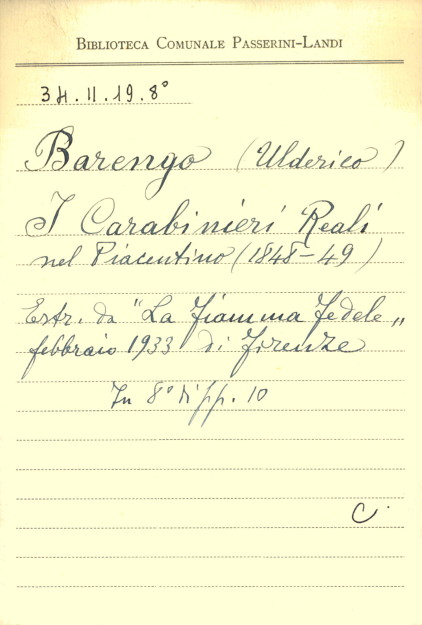 BIBLIOTECA COMUNALE PASSERINI-LANDI
3H.II.19.8°
Barengo (Ulderico)
I Carabinieri Reali
nel Piacentino (1848-49)
Estr. da "La Fiamma Fedele„
febbraio 1933 di Firenze
In 8° di pp. 10
C.